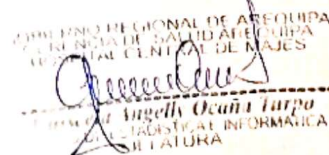 GOBIERNO REGIONAL DE AREQUIPA
GERENCIA DE SALUD AREQUIPA
HOSPITAL CENTRAL DE MAJES
Angelly Ocaña Turpo
ESTADISTICA E INFORMATICA
JEFATURA